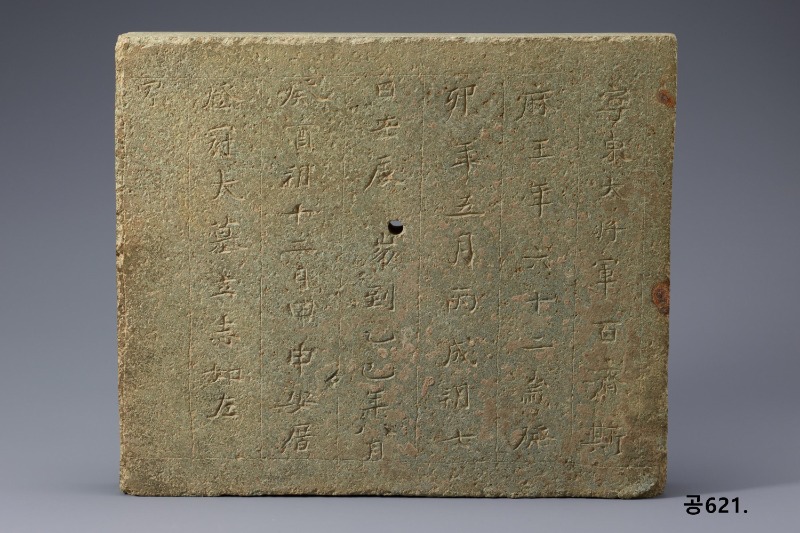 寧東大将軍百濟斯
麻王年六十二歲癸
卯年五月丙戌朔七
日壬辰崩到乙巳年八月
癸酉朔十二日甲申安厝
登冠大墓立志如左
공621.